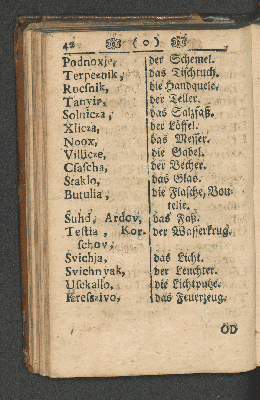 42 ( o )
Podnoxje, der Schemel.
Terpeznik, das Tischtuch.
Rucsnik, die Handquele.
Tanyir, der Teller.
Solnicza, das Salzfaß.
Xlicza, der Löffel.
Noox, das Messer.
Villicze, die Gabel.
Csascha, der Becher.
Staklo, das Glas.
Butulia, die Flasche, Bou-
telie.
Suhd, Ardov, das Faß.
Testia, Kor- der Wasserkrug.
schov,
Svichja, das Licht.
Svichnyak, der Leuchter.
Usekallo, die Lichtputze.
Kresszivo, das Feuerzeug.
OD